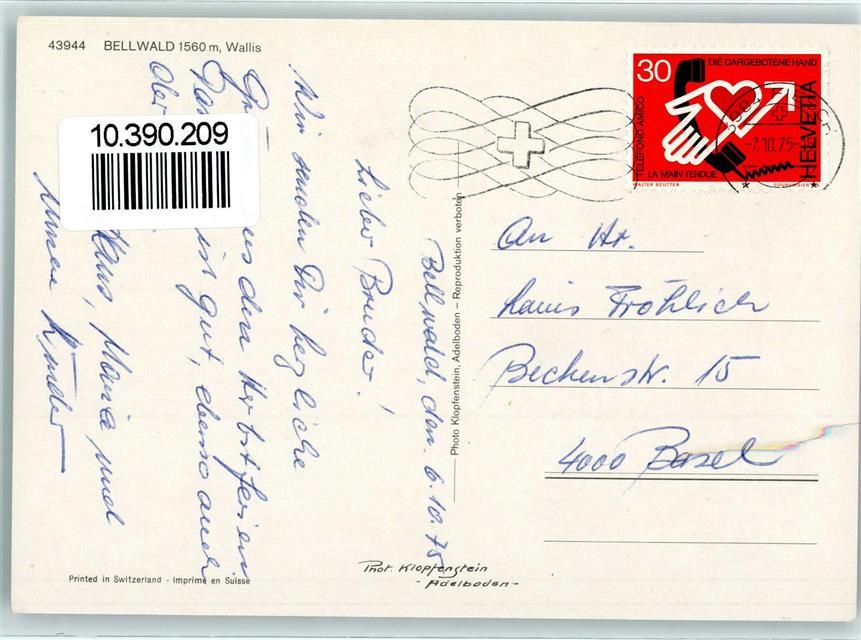 43944 BELLWALD 1560 m, Wallis
10.390.209
Bellwald, den. 6.10.75
Lieber Bruder!
Wir senden Dir herzliche
aus den Herbstferien
ist gut, ebenso auch
Hans, Maria und
unsere Kinder
Photo Klopfenstein, Adelboden – Reproduktion verboten
30
DIE DARGEBOTENE HAND
TELEFONO AMICO
LA MAIN TENDUE
HELVETIA
WALTER BEUTTER
COURVOISIER
-7.10.75-
An Hr.
Fröhlich
15
4000 Basel
Printed in Switzerland - Imprimé en Suisse
Phot. Klopfenstein
- Adelboden -